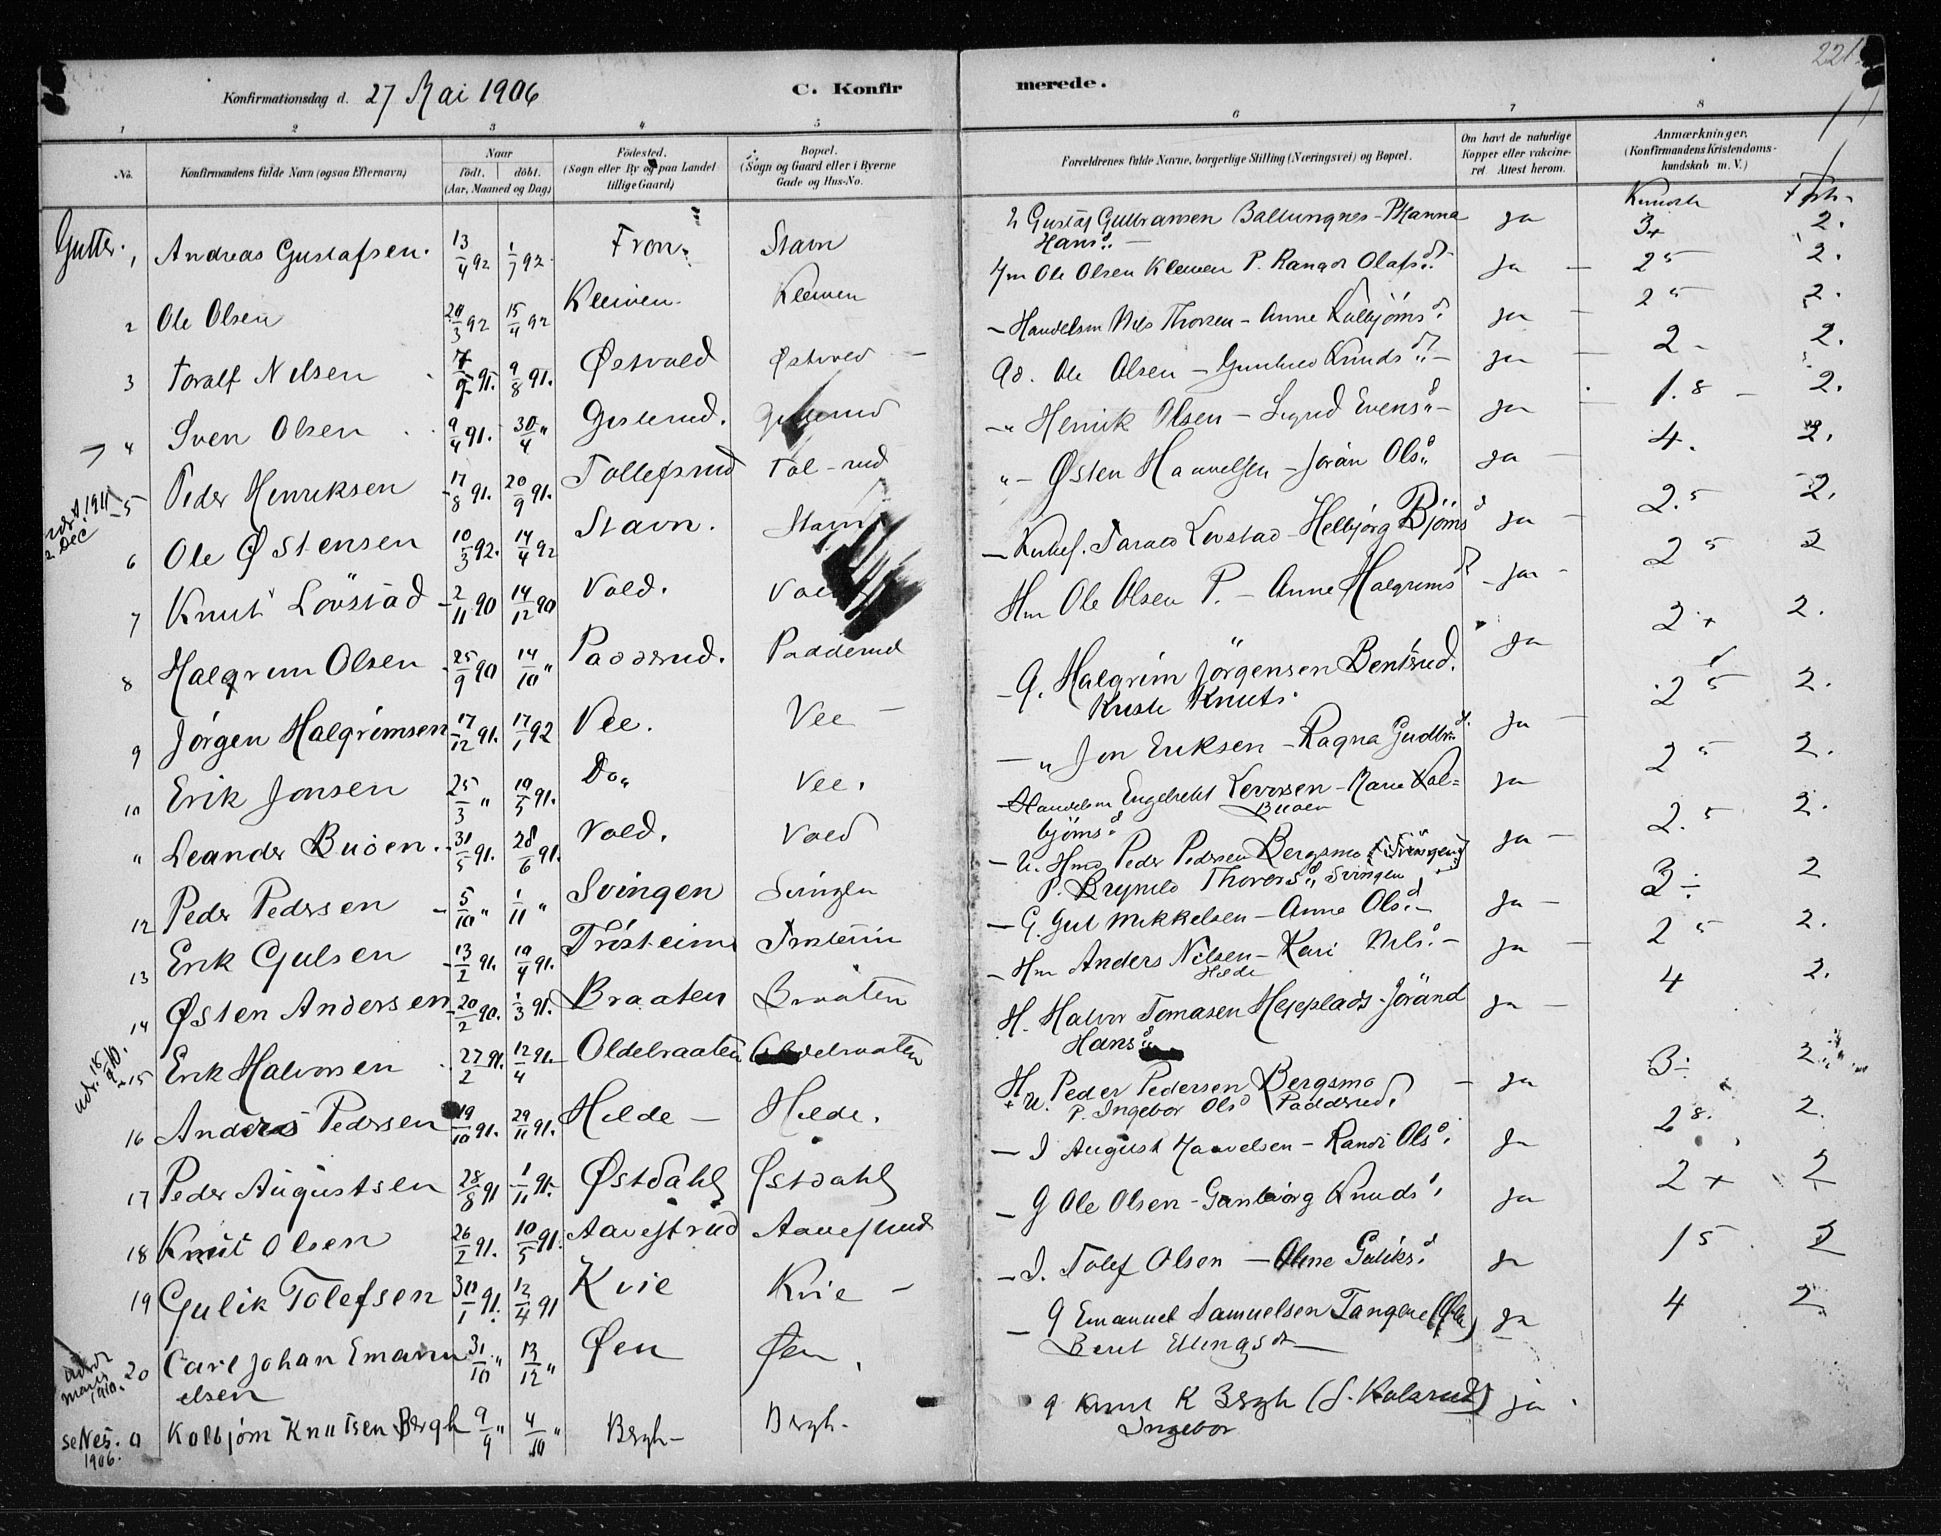 221.
Konfirmationsdag d. 27 Mai 1906 C. Konfirmerede.
1 2 3 4 5 6 7 8
No. Konfirmandens fulde Navn (ogsaa Efternavn) Naar født. døbt. (Aar, Maaned og Dag) Fødested. (Sogn eller By og paa Landet tillige Gaard) Bopæl. (Sogn og Gaard eller i Byerne Gade og Hus-No. Forældrenes fulde Navne, borgerlige Stilling (Næringsvei) og Bopæl. Om havt de naturlige Kopper eller vaccineret Attest herom. Anmærkninger. (Konfirmandens Kristendomskundskab m. V.)
Gutter. 1 Andreas Gustafsen. 13/4 92 1/7 92. Fron. Stavn Gustaf Gulbransen Hanna Hansd. ja 3+ 2.
2 Ole Olsen 20/3 92 15/4 92 Kleiven. Kleiven Ole Olsen Kleiven P. Olafsd. ja 2 5 2.
3 Toralf Nilsen 9/8 91. Østvold Østvold Handelsm Nils Thorsen - Anne Kolbjørnsd. ja 2 5 2.
4 Sven Olsen 9/4 91. 30/4 " Gisterud. Ole Olsen - Knudsd. ja 2 - 2.
5 Peder Henriksen 17/8 91. 20/9 91. Tollefsrud Tol-rud " Henrik Olsen - Sigrid Evensd. ja 1.8 - 2.
2 Dec
6 Ole Østensen 10/3 92. 14/4 92 Stavn. Stavn " - Østen Haavelsen - Jøran Olsd. ja 4. 2.
7 Knut Lövstad 2/11 90 14/12 90 Vold. Lovstad - Helbjørg Bjørnsd ja 2.5 2.
8 Halgrim Olsen 25/9 90 14/10 " Padderud. Padderud Hm Ole Olsen P. - Anne Halgrimsd - ja - 2 5 2
9 Jørgen Halgrimsen 17/12 91. 17/1 92 Vee. Vee - G. Halgrim Jørgensen Bentsrud. ja 2 + 2.
Knuts.
10 Erik Jonsen 25/3 " 19/5 91. Do " Vee. " Jon Eriksen - Ragna Gudbrd. ja 2 5 2.
" Leander Buöen. 31/5 91. 28/6 91. Vold. Vold Handelsm Engebrekt - Marie Kol= ja 2 5 2.
Buöen
bjørnsd.
12 Peder Pedersen 5/10 " 1/11 " Svingen Svingen Peder Pedersen Bergsmo (Svingen) ja 2.5 2.
P. Brynild Thoresd. Svingen
13 Erik Gulsen 13/2 91. 19/4 91. Trösteim G. Gul Mikkelsen - Anne Olsd. ja 3 ÷ 2
14 Østen Andersen 20/2 90. 1/3 91. Braaten Braaten Hm Anders Nilsen - Kari Nilsd. - ja 2 5 2.
Hilde
15 Erik Halvorsen 27/2 91. 12/4 91. Oldebraaten Oldebraaten H. Halvor Tomasen Jöränd ja 4 2.
Hansd.
16 Anders Pedersen 19/10 91. 29/11 91. Hilde - Hilde. Peder Pedersen Bergsmo - ja 3 ÷ 2
P. Ingebor Olsd (Padderud)
17 Peder Augustsen 28/8 91 1/11 91. Østdahl Østdahl - I August Haavelsen - Randi Olsd. ja 2 8. 2.
18 Knut Olsen 26/2 91. 10/5 91. Aavestrud Aavestrud - G Ole Olsen - Gunbjørg Knudsd. ja 2 + 2
19 Gulik Tolefsen 30/1 91. 12/4 91 Kvie Kvie - I. Tolef Olsen - Guliksd. ja 1 5 2
20 Carl Johan Emanu 31/10 " 13/12 " Øen Øen, G Emanuel Samuelsen Tangene ja 4 2
elsen Berit
se Nes. Kolbjørn Knutsen Bergh 9/9 " 4/10 " Bergh - Bergh - G Knut K Bergh ja
1906. Ingebor